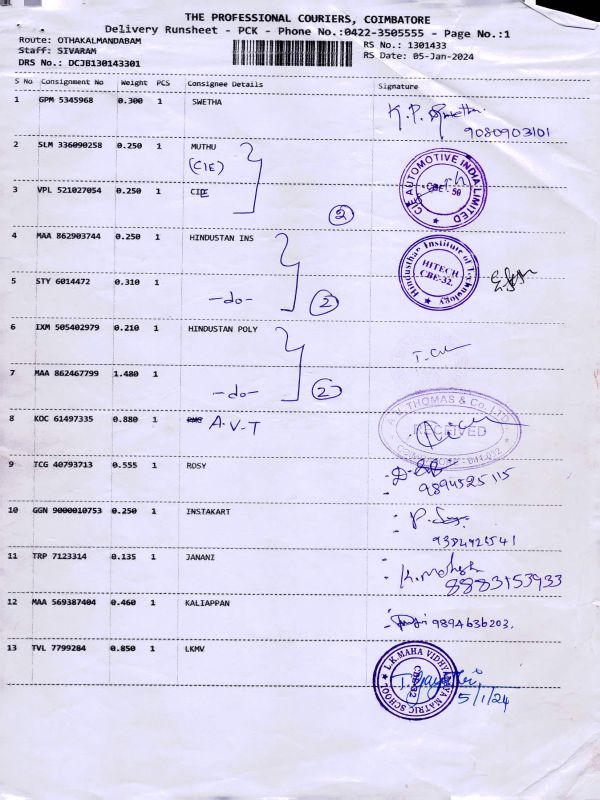 THE PROFESSIONAL COURIERS, COIMBATORE
Delivery Runsheet - PCK - Phone No.:0422-3505555 - Page No.:1
Route: OTHAKALMANDABAM
RS No.: 1301433
Staff: SIVARAM
RS Date: 05-Jan-2024
DRS No.: DCJB130143301
S No Consignment No Weight PCS Consignee Details Signature
1 GPM 5345968 0.300 1 SWETHA
K.P. Swetha
9080903101
2 SLM 336090258 0.250 1 MUTHU
(CIE)
3 VPL 521027054 0.250 1 CIE
2
CIE AUTOMOTIVE INDIA LIMITED
CBE - 50
4 MAA 862903744 0.250 1 HINDUSTAN INS
Hindusthan Institute of Technology
HITECH
CBE-32.
5 STY 6014472 0.310 1
-do- 2
6 IXM 505402979 0.210 1 HINDUSTAN POLY
7 MAA 862467799 1.480 1
-do- 2
8 KOC 61497335 0.880 1 A.V.T
A.V. THOMAS & CO. LTD
RECEIVED
9 TCG 40793713 0.555 1 ROSY
9894525115
10 GGN 9000010753 0.250 1 INSTAKART
11 TRP 7123314 0.135 1 JANANI
K. Mahesh
8883153933
12 MAA 569387404 0.460 1 KALIAPPAN
9894636203.
13 TVL 7799284 0.850 1 LKMV
L.K. MAHA VIDHYALAYA MATRIC SCHOOL
CBE-32
5/1/24